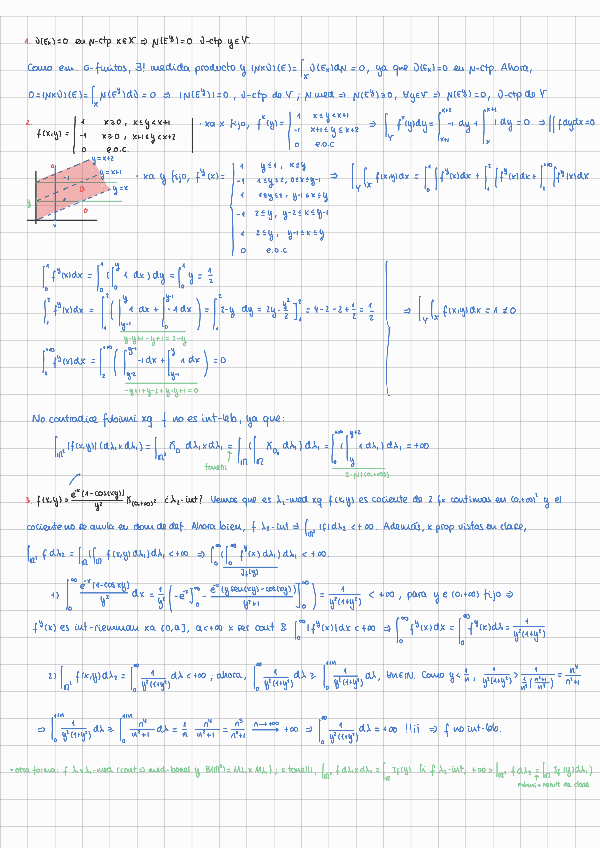 1. ν(Eₓ)=0 en μ-ctp x∈X ⇒ μ(E^y)=0 ν-ctp y∈Y.
Como em. σ-finitos, ∃! medida producto y (μ×ν)(E)=∫_X ν(Eₓ)dμ = 0, ya que ν(Eₓ)=0 en μ-ctp. Ahora,
0=(μ×ν)(E)=∫_Y μ(E^y)dν = 0 ⇒ |μ(E^y)|=0, ν-ctp de Y; μ med ⇒ μ(E^y)≥0, ∀y∈Y ⇒ μ(E^y)=0, ν-ctp de Y
2. f(x,y) = { 1 x≥0, x≤y<x+1
-1 x≥0, x+1≤y<x+2
0 e.o.c.
· xa x fijo, fˣ(y)= { 1 x≤y<x+1
-1 x+1≤y≤x+2
0 e.o.c
⇒ ∫_Y fˣ(y)dy = ∫_{x+1}^{x+2} -1 dy + ∫_x^{x+1} 1 dy = 0 ⇒ ∫∫ f dy dx = 0
y=x+2
y=x+1
y=x
· xa y fijo, f^y(x)= { 1 y≤1, x≤y
-1 1≤y≤2, 0≤x≤y-1
1 1≤y≤2, y-1≤x≤y
-1 2≤y, y-2≤x≤y-1
1 2≤y, y-1≤x≤y
0 e.o.c
⇒ ∫_Y∫_X f(x,y)dx = ∫_0^1∫f^y(x)dx + ∫_1^2∫f^y(x)dx + ∫_2^{+∞}∫f^y(x)dx
∫_0^1 f^y(x)dx = ∫_0^1 (∫_0^y 1 dx) dy = ∫_0^1 y = 1/2
∫_1^2 f^y(x)dx = ∫_1^2 (∫_{y-1}^y 1 dx + ∫_0^{y-1} -1 dx) = ∫_1^2 2-y dy = 2y - y²/2 ]_1^2 = 4-2-2+1/2 = 1/2
y-y+1-y+1=2-y
⇒ ∫_Y∫_X f(x,y)dx = 1 ≠ 0
∫_2^{+∞} f^y(x)dx = ∫_2^{+∞} (∫_{y-2}^{y-1} -1 dx + ∫_{y-1}^y 1 dx) = 0
-y+1+y-2+y-y+1=0
No contradice fubini xq f no es int-leb, ya que:
∫_{ℝ²} |f(x,y)| (dλ₁×dλ₁) = ∫_{ℝ²} dλ₁×dλ₁ = ∫_ℝ (∫_ℝ dλ₁) dλ₁ = ∫_0^{+∞} (∫_y^{y+2} 1 dλ₁) dλ₁ = +∞
tonelli
3. f(x,y) = e^{-x}(1-cos(xy))/y² χ_{(0,+∞)²} ¿λ₂-int? Vemos que es λ₂-med xq f(x,y) es cociente de 2 fx continuas en (0,+∞)² y el
cociente no se anula en dom de def. Ahora bien, f λ₂-int ⇒ ∫_{ℝ²} |f|dλ₂ < +∞. Además, x prop vistas en clase,
∫_{ℝ²} f dλ₂ = ∫_ℝ (∫_ℝ f(x,y)dλ₁)dλ₁ < +∞ ⇒ ∫_0^∞ (∫_0^∞ f^y(x) dλ₁) dλ₁ < +∞.
I_f(y)
1) ∫_0^∞ e^{-x}(1-cos(xy))/y² dx = 1/y² (-e^{-x}]_0^∞ - e^{-x}(y sen(xy)-cos(xy))/(y²+1) ]_0^∞) = 1/(y²(1+y²)) < +∞, para y∈(0,+∞) fijo ⇒
f^y(x) es int-riemann xa [0,a], a<+∞ x ser cont & ∫_0^∞ |f^y(x)|dx < +∞ ⇒ ∫_0^∞ f^y(x)dx = ∫_0^∞ f^y(x)dλ = 1/(y²(1+y²))
2) ∫_{ℝ²} f(x,y)dλ₂ = ∫_0^∞ 1/(y²(1+y²)) dλ < +∞; ahora, ∫_0^∞ 1/(y²(1+y²)) dλ ≥ ∫_0^{1/n} 1/(y²(1+y²)) dλ, ∀n∈ℕ. Como y < 1/n, 1/(y²(1+y²)) > 1/(1/n²((n²+1)/n²)) = n⁴/(n²+1)
⇒ ∫_0^{1/n} 1/(y²(1+y²)) dλ ≥ ∫_0^{1/n} n⁴/(n²+1) dλ = 1/n · n⁴/(n²+1) = n³/(n²+1) → (n→+∞) +∞ ⇒ ∫_0^∞ 1/(y²(1+y²)) dλ = +∞ !!¡¡ ⇒ f no int-leb.